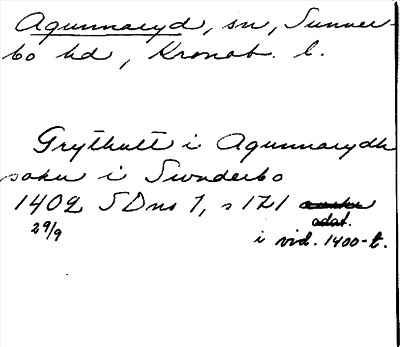 Agunnaryd, sn, Sunner-
bo hd, Kronob. l.
Grythult i Agunnarydh
sokn i Swnderbo
1402 SDns 1, s 121
29/9 odat.
i vid. 1400-t.